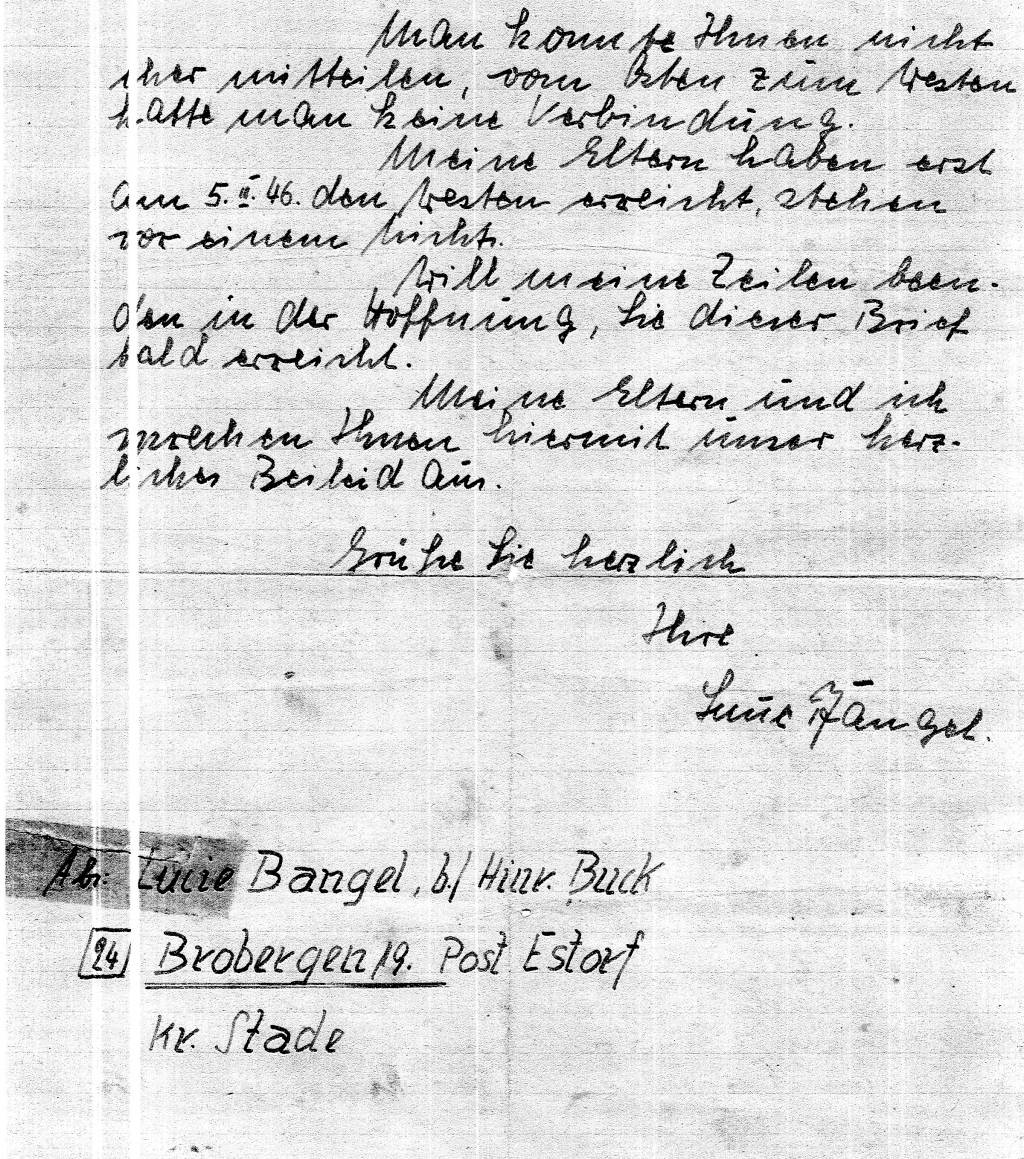 Man konnte Ihnen nicht
eher mitteilen, vom Osten zum Westen
hatte man keine Verbindung.
Meine Eltern haben erst
am 5. III. 46. den Westen erreicht, stehen
vor einem Nichts.
Will meine Zeilen been-
den in der Hoffnung, Sie dieser Brief
bald erreicht.
Meine Eltern und ich
sprechen Ihnen hiermit unser herz-
liches Beileid aus.
Grüße Sie herzlich
Ihre
Lucie Bangel.
Abs: Lucie Bangel, b./ Hinr. Buck
24 Brobergen 19. Post Estorf
Kr. Stade